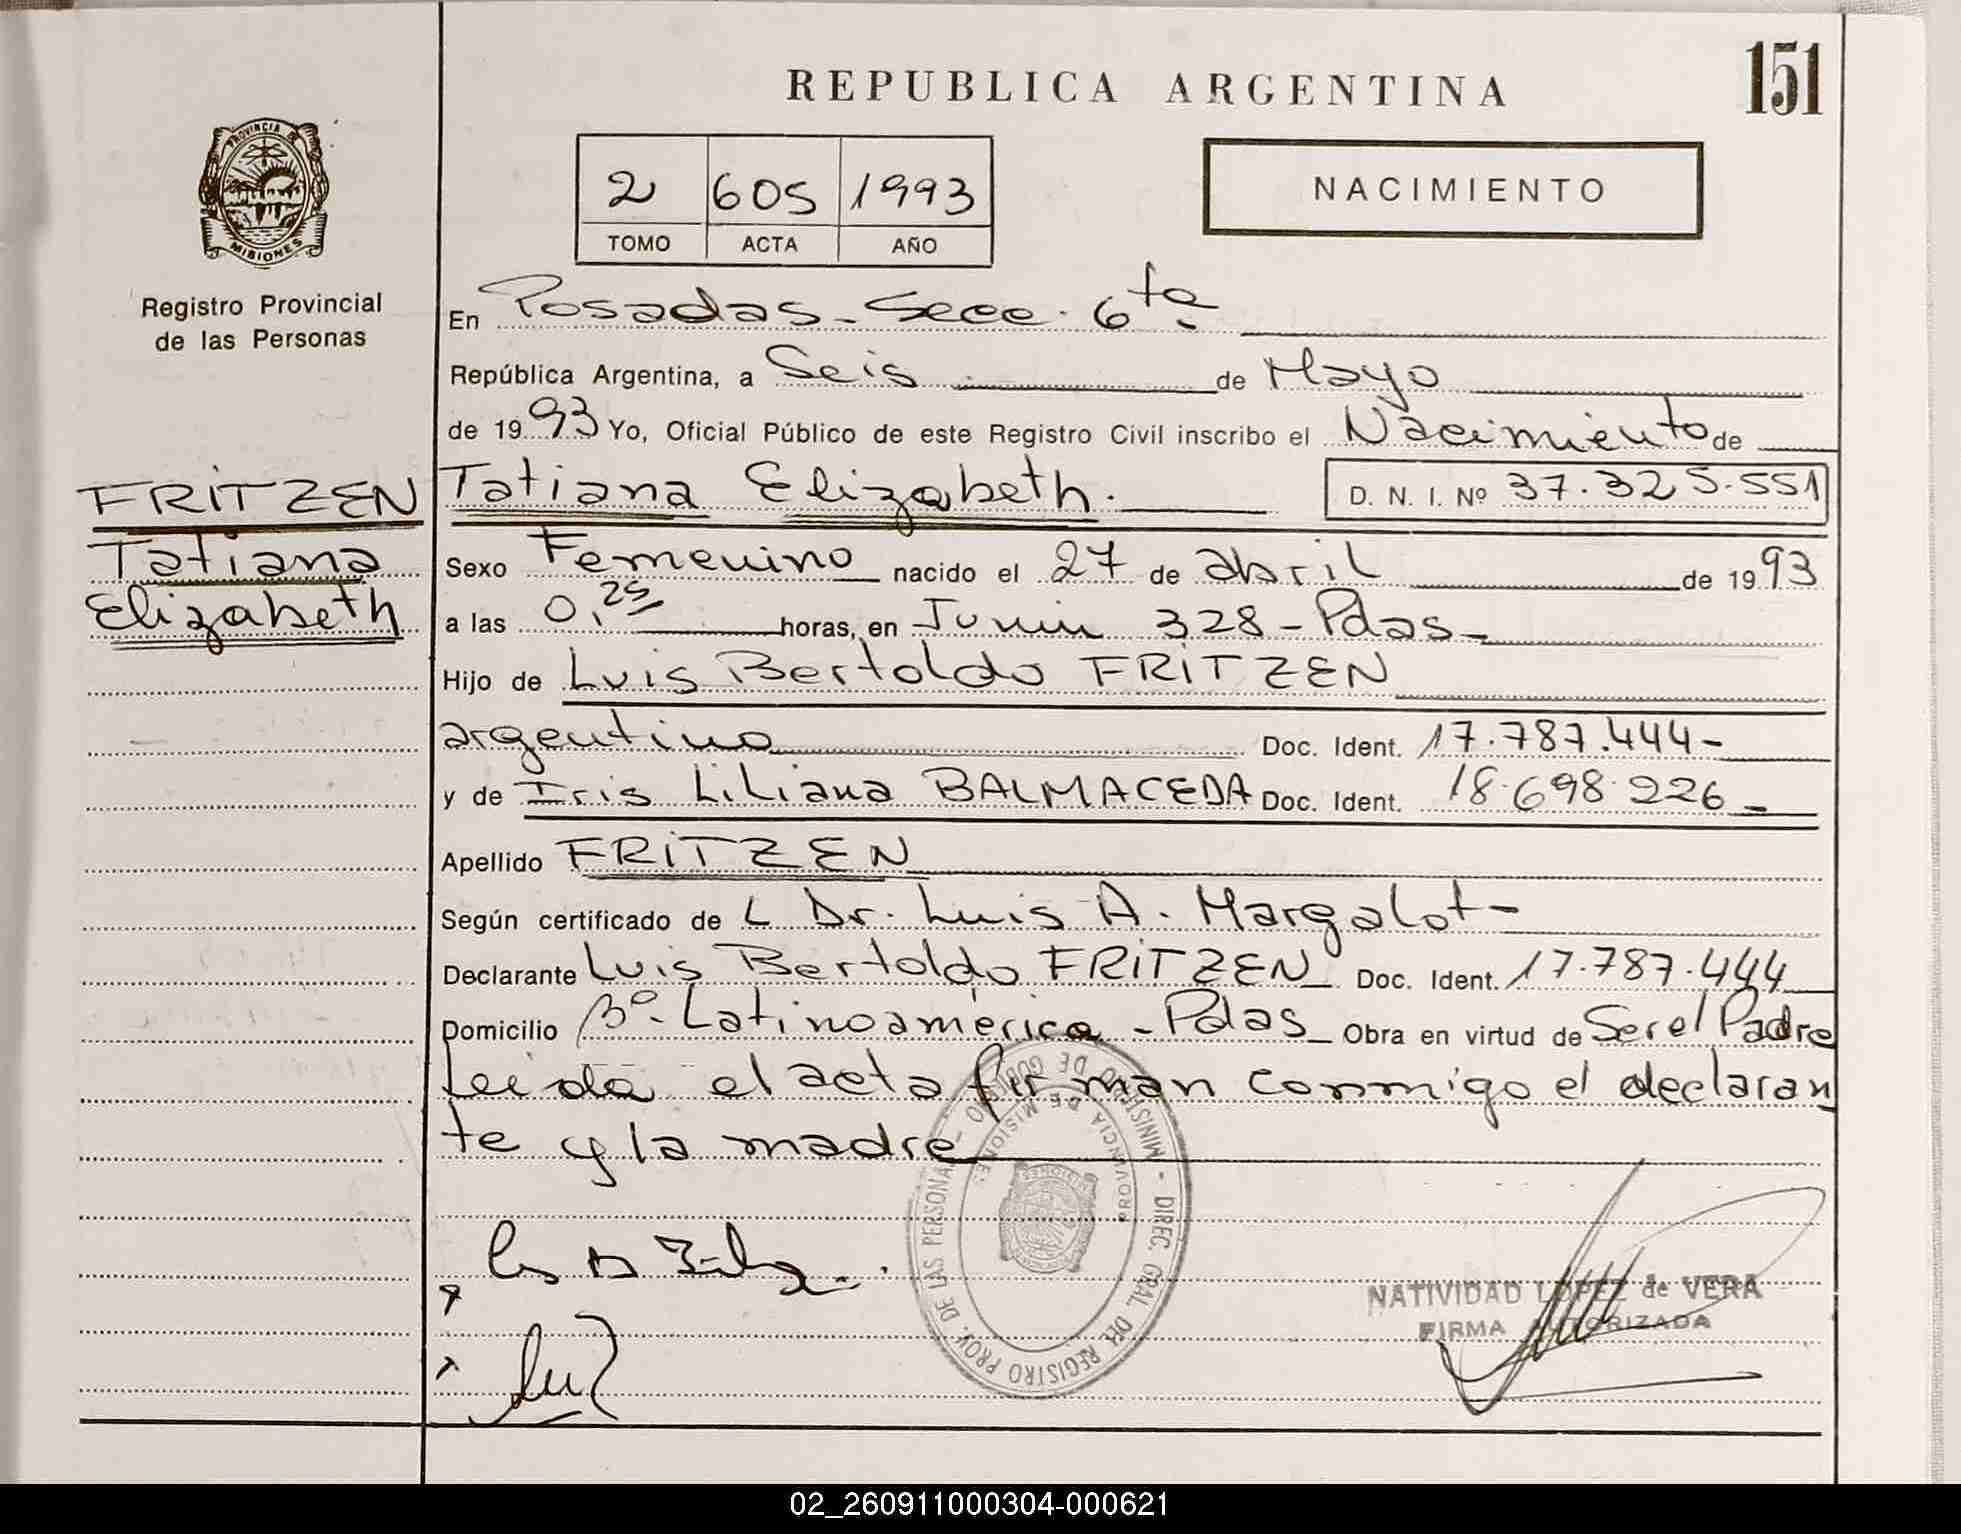 151
REPUBLICA ARGENTINA
PROVINCIA DE
MISIONES
Registro Provincial
de las Personas
2 605 1993
TOMO ACTA AÑO
NACIMIENTO
En Posadas - Secc. 6ta
República Argentina, a Seis de Mayo
de 1993 Yo, Oficial Público de este Registro Civil inscribo el Nacimiento de
FRITZEN
Tatiana
Elizabeth
Tatiana Elizabeth. D. N. I. Nº 37.325.551
Sexo Femenino nacido el 27 de abril de 1993
a las 0,25 horas, en Junin 328 - Pdas -
Hijo de Luis Bertoldo FRITZEN
argentino Doc. Ident. 17.787.444 -
y de Iris Liliana BALMACEDA Doc. Ident. 18.698.226 -
Apellido FRITZEN
Según certificado de L Dr. Luis A. Margalot -
Declarante Luis Bertoldo FRITZEN Doc. Ident. 17.787.444
Domicilio Bº - Latinoamérica - Pdas Obra en virtud de Ser el Padre
Leida el acta firman conmigo el declaran
te y la madre
DIREC. GRAL DEL REGISTRO PROV. DE LAS PERSONAS - MINISTERIO DE GOBIERNO
PROVINCIA DE MISIONES
NATIVIDAD LOPEZ de VERA
FIRMA AUTORIZADA
02_260911000304-000621